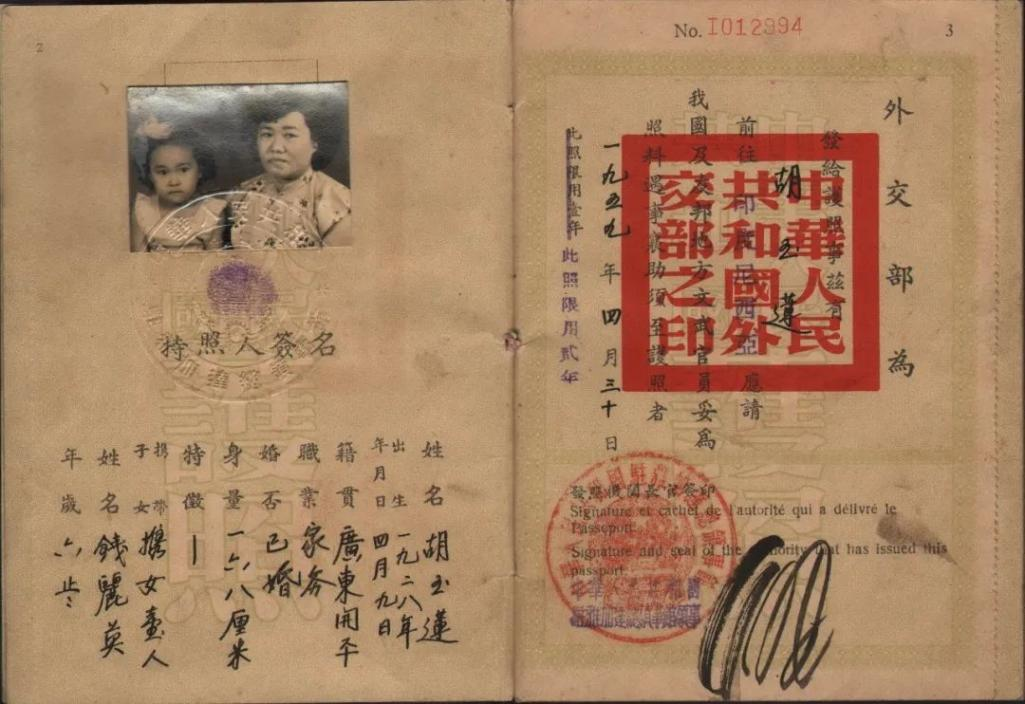 2
持照人簽名
姓名 胡玉蓮
出生年月日 一九二八年四月九日
籍貫 廣東開平
職業 家务
婚否 已婚
身量 一六八厘米
特徵 —
攜帶子女 攜女壹人
姓名 錢麗英
年歲 六
No. I012994
3
外交部為
發給護照事茲有
胡玉蓮
前往印度尼西亞應請
我國及友邦地方文武官員妥為
照料遇事襄助須至護照者
一九五九年四月三十日
此照限用壹年
此照限用貳年
中華人民
共和國外
交部之印
發照機關長官簽印
Signature et cachet de l'autorité qui a délivré le
Passeport
Signature and seal of the authority that has issued this
passport